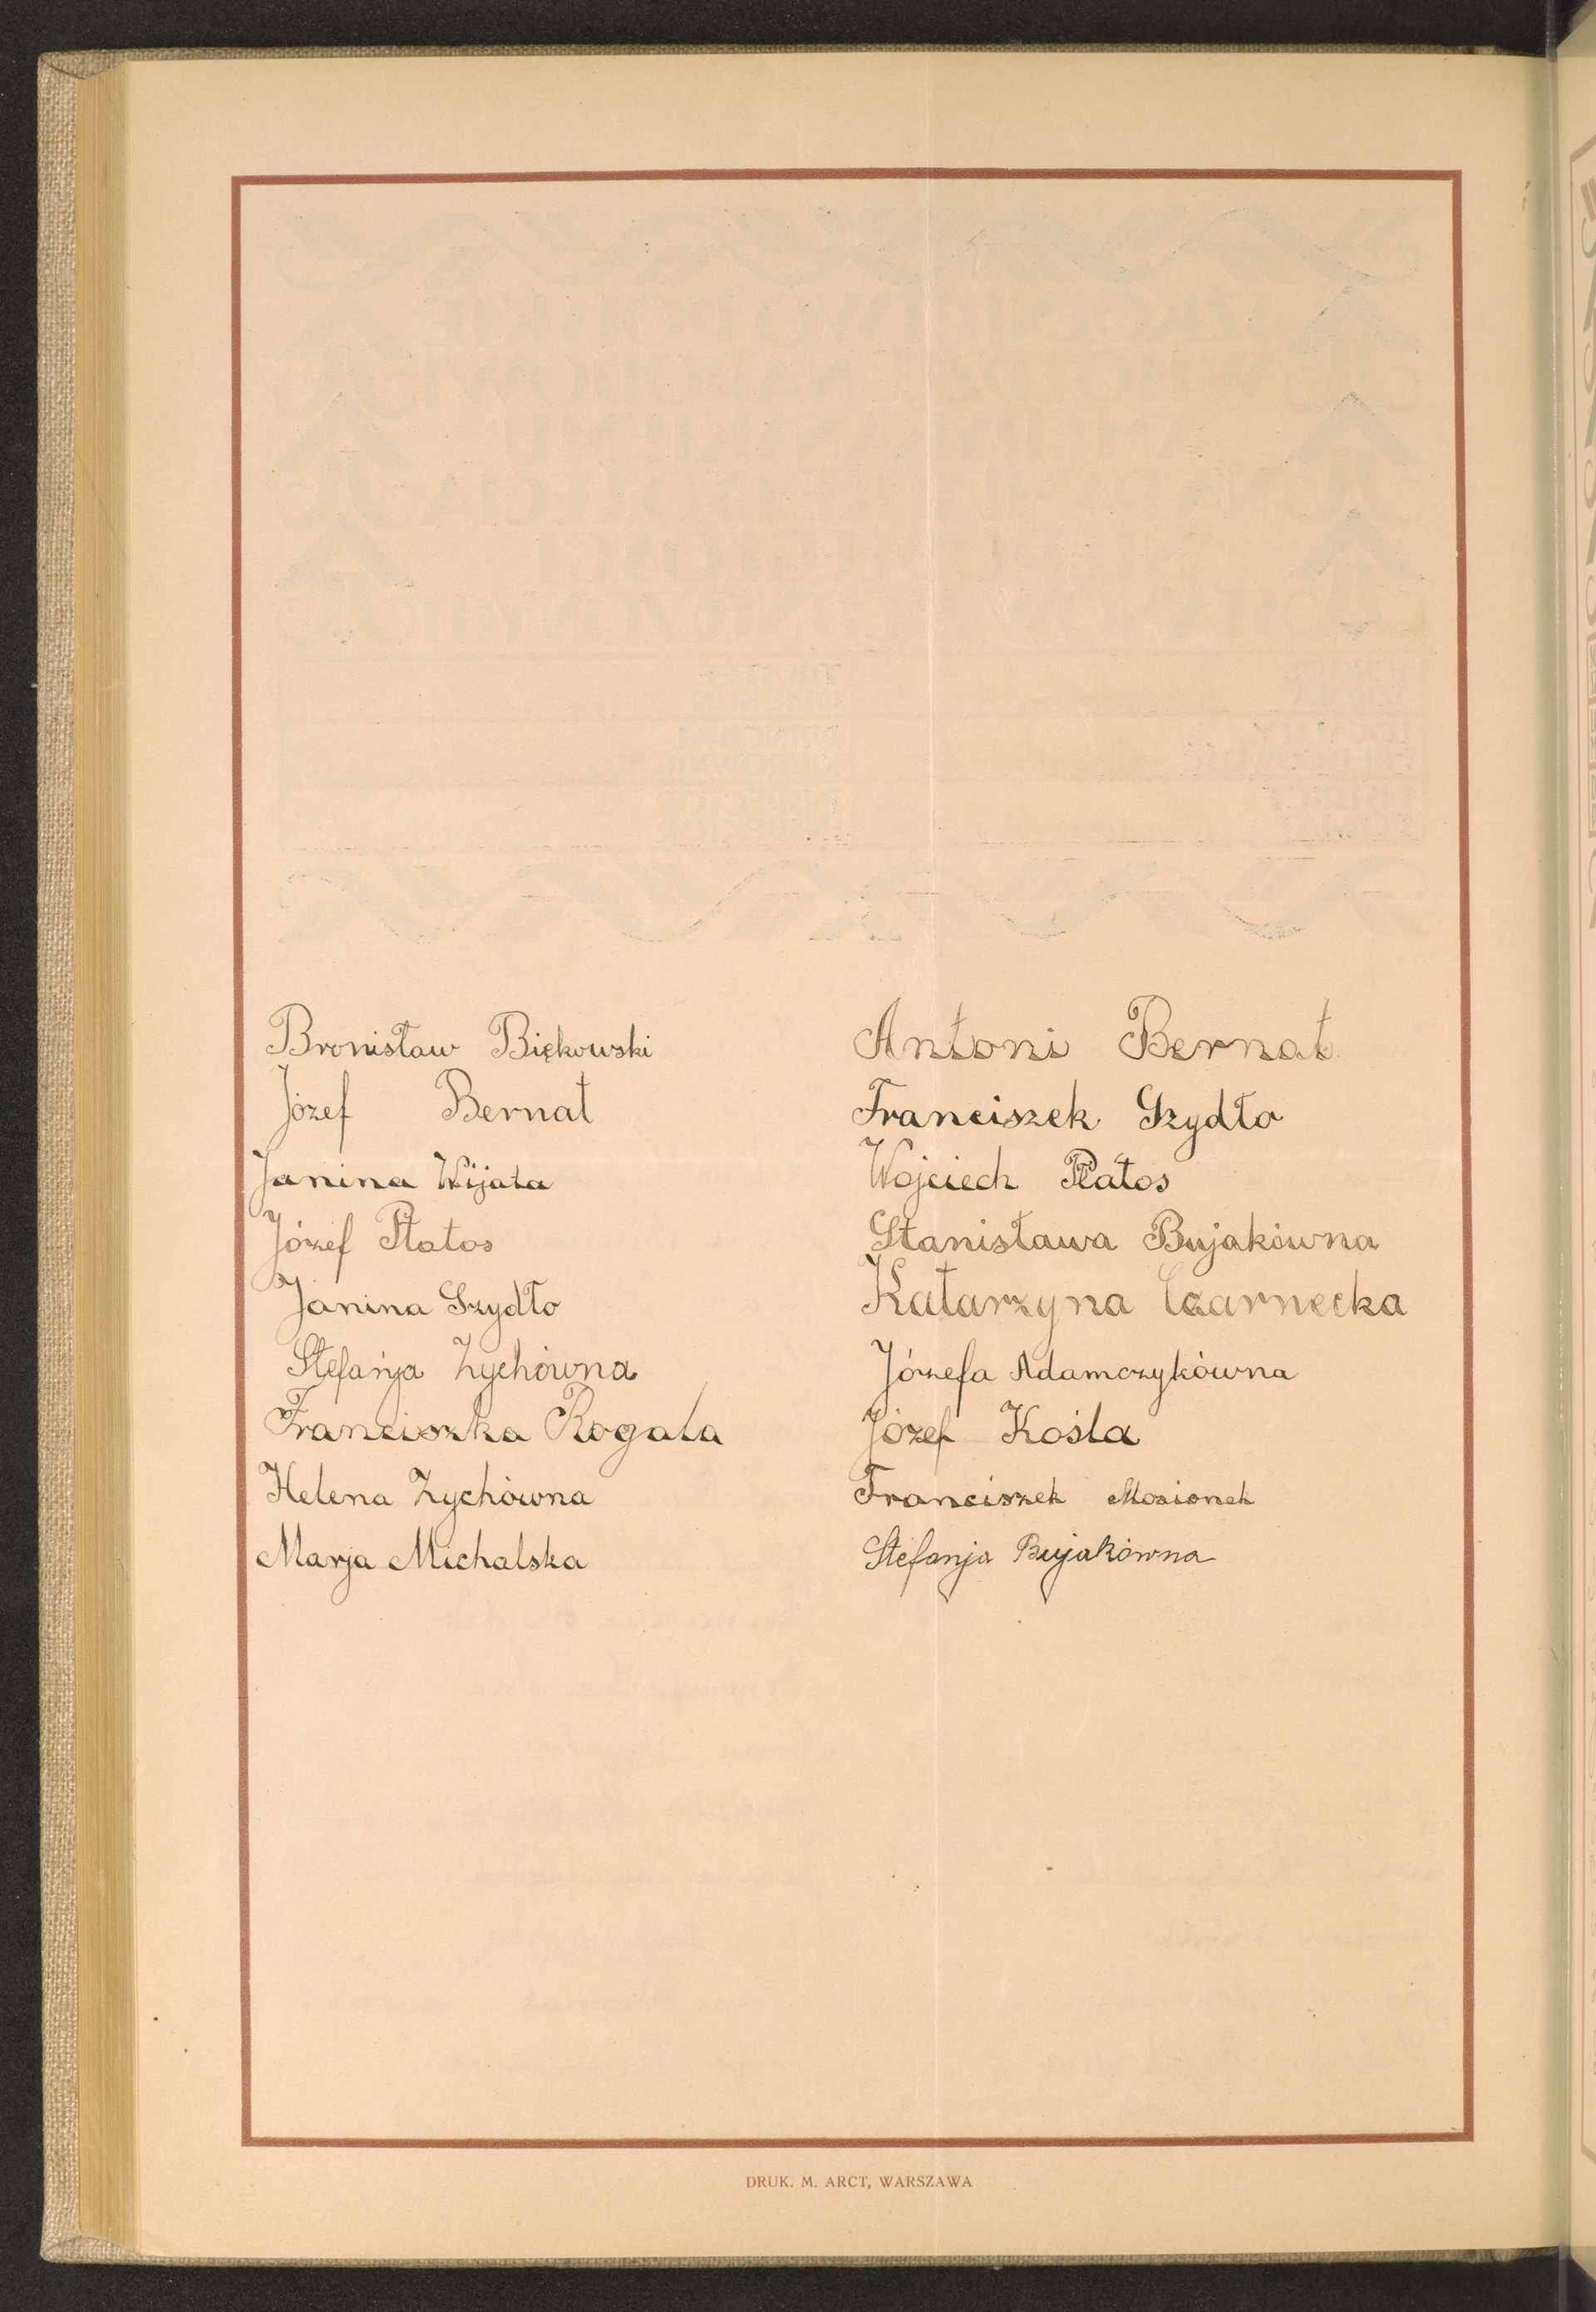 Bronisław Biękowski
Józef Bernat
Janina Wijata
Józef Płatos
Janina Szydło
Stefanja Zychówna
Franciszka Rogala
Helena Zychówna
Marja Michalska
Antoni Bernat
Franciszek Szydło
Wojciech Płatos
Stanisława Bujakówna
Katarzyna Czarnecka
Józefa Adamczykówna
Józef Kośla
Franciszek Mosionek
Stefanja Bujakówna
DRUK. M. ARCT, WARSZAWA